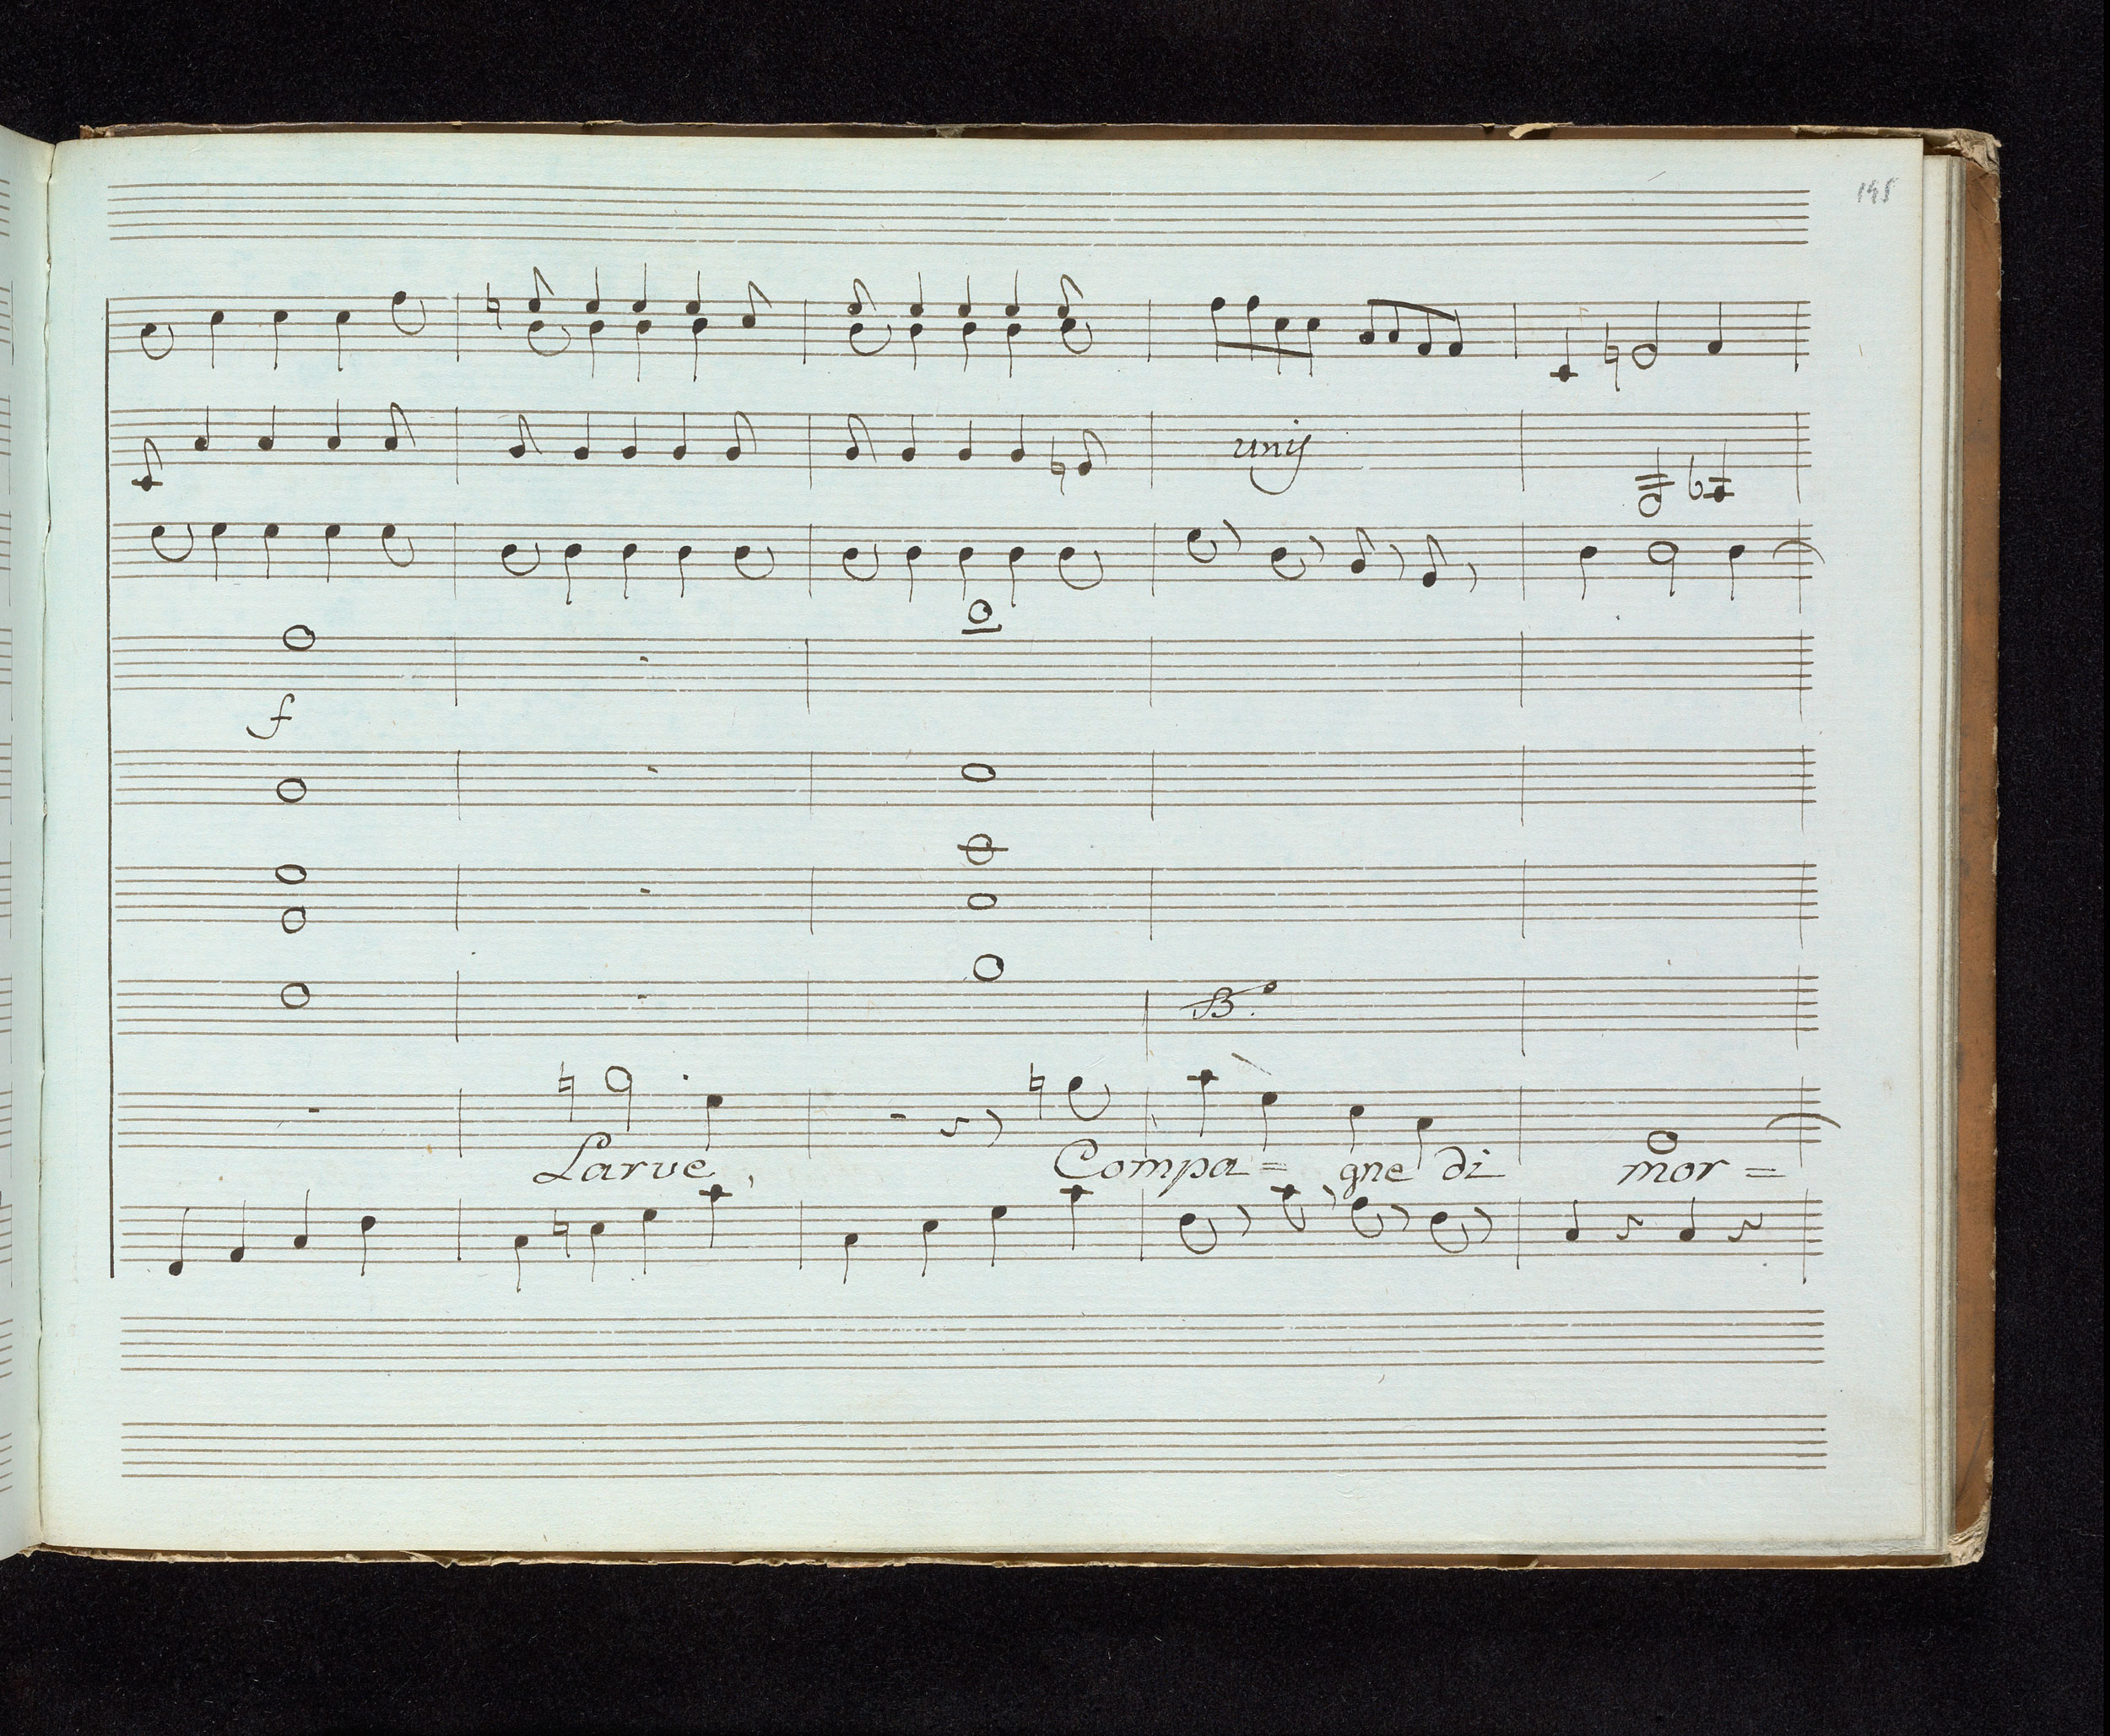 195
unis
f
B.
Larve, Compa= gne di mor=